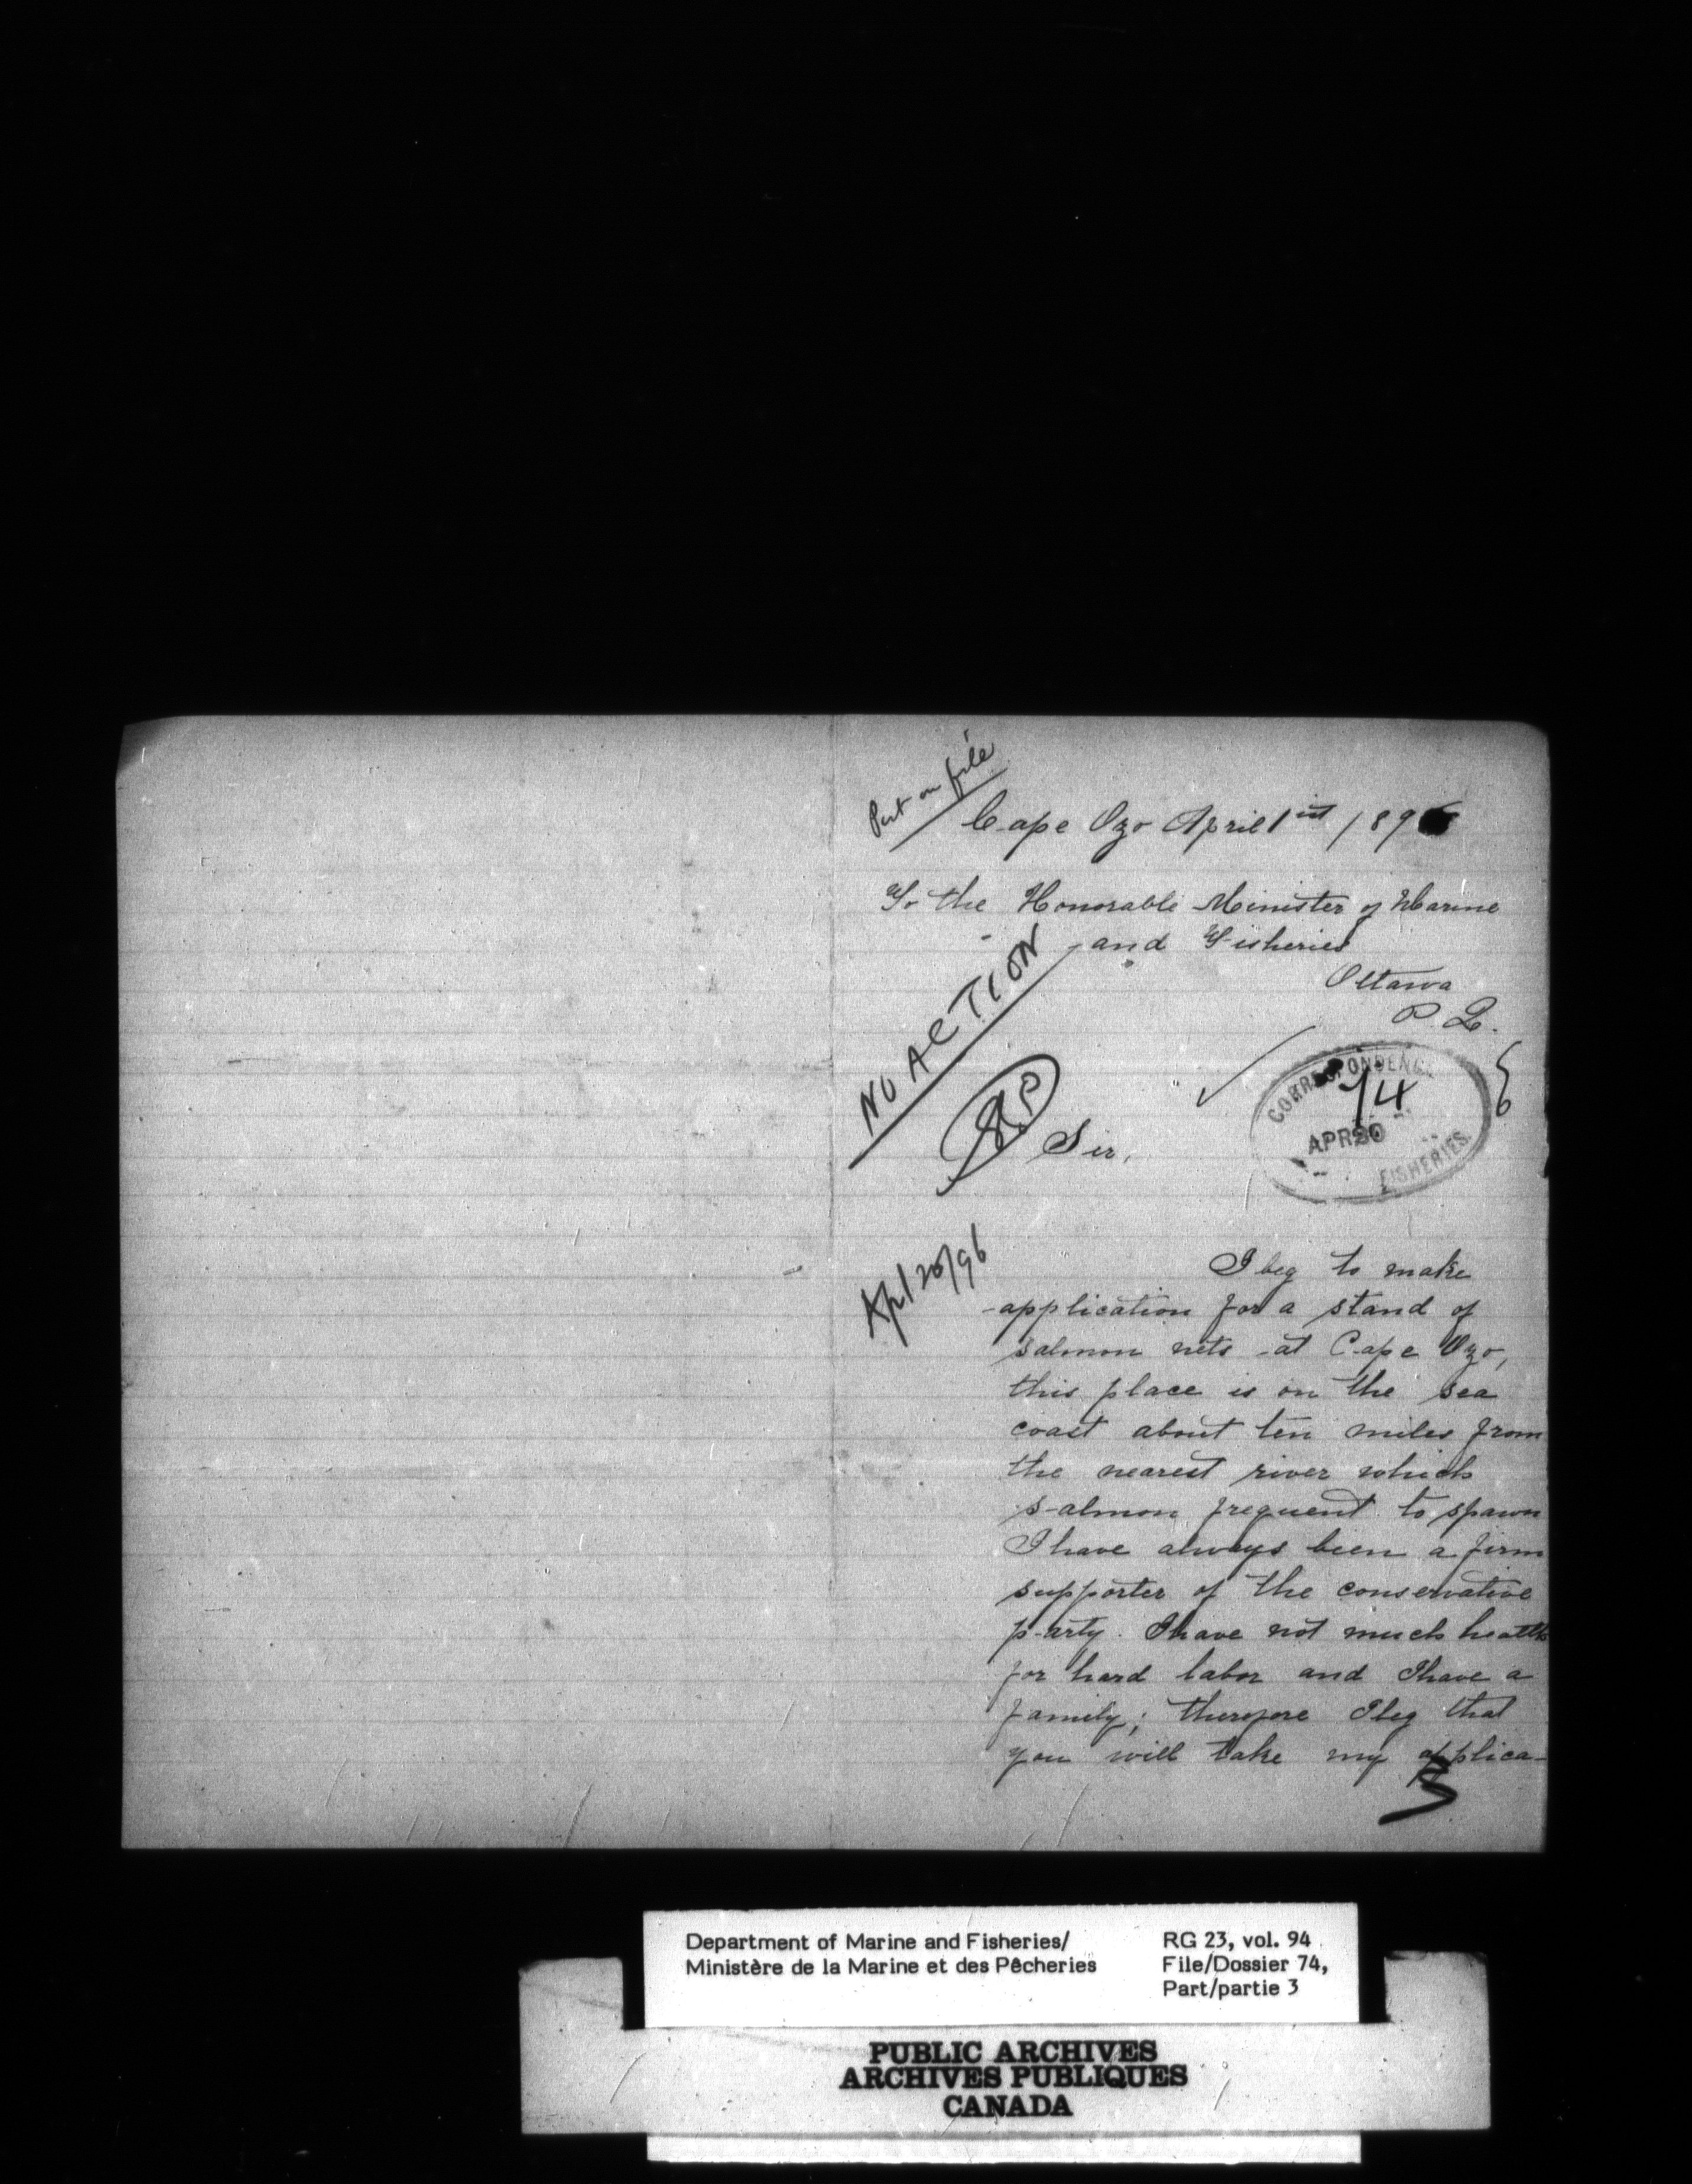 Put on file
Cape Ozo April 1st / 896
To the Honorable Minister of Marine
and Fisheries
Ottawa
P. Q.
NO ACTION
CORRESPONDENCE
74
APR 20
FISHERIES.
Sir,
Apl 20/96
I beg to make
application for a stand of
salmon nets at Cape Ozo,
this place is on the sea
coast about ten miles from
the nearest river which
salmon frequent to spawn
I have always been a firm
supporter of the conservative
party. I have not much health
for hard labor and I have a
family; therefore I beg that
you will take my applica-
Department of Marine and Fisheries/
Ministère de la Marine et des Pêcheries
RG 23, vol. 94
File/Dossier 74,
Part/partie 3
PUBLIC ARCHIVES
ARCHIVES PUBLIQUES
CANADA